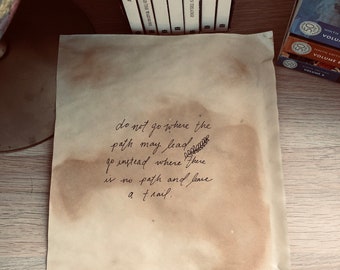 do not go where the
path may lead
go instead where there
is no path and leave
a trail.